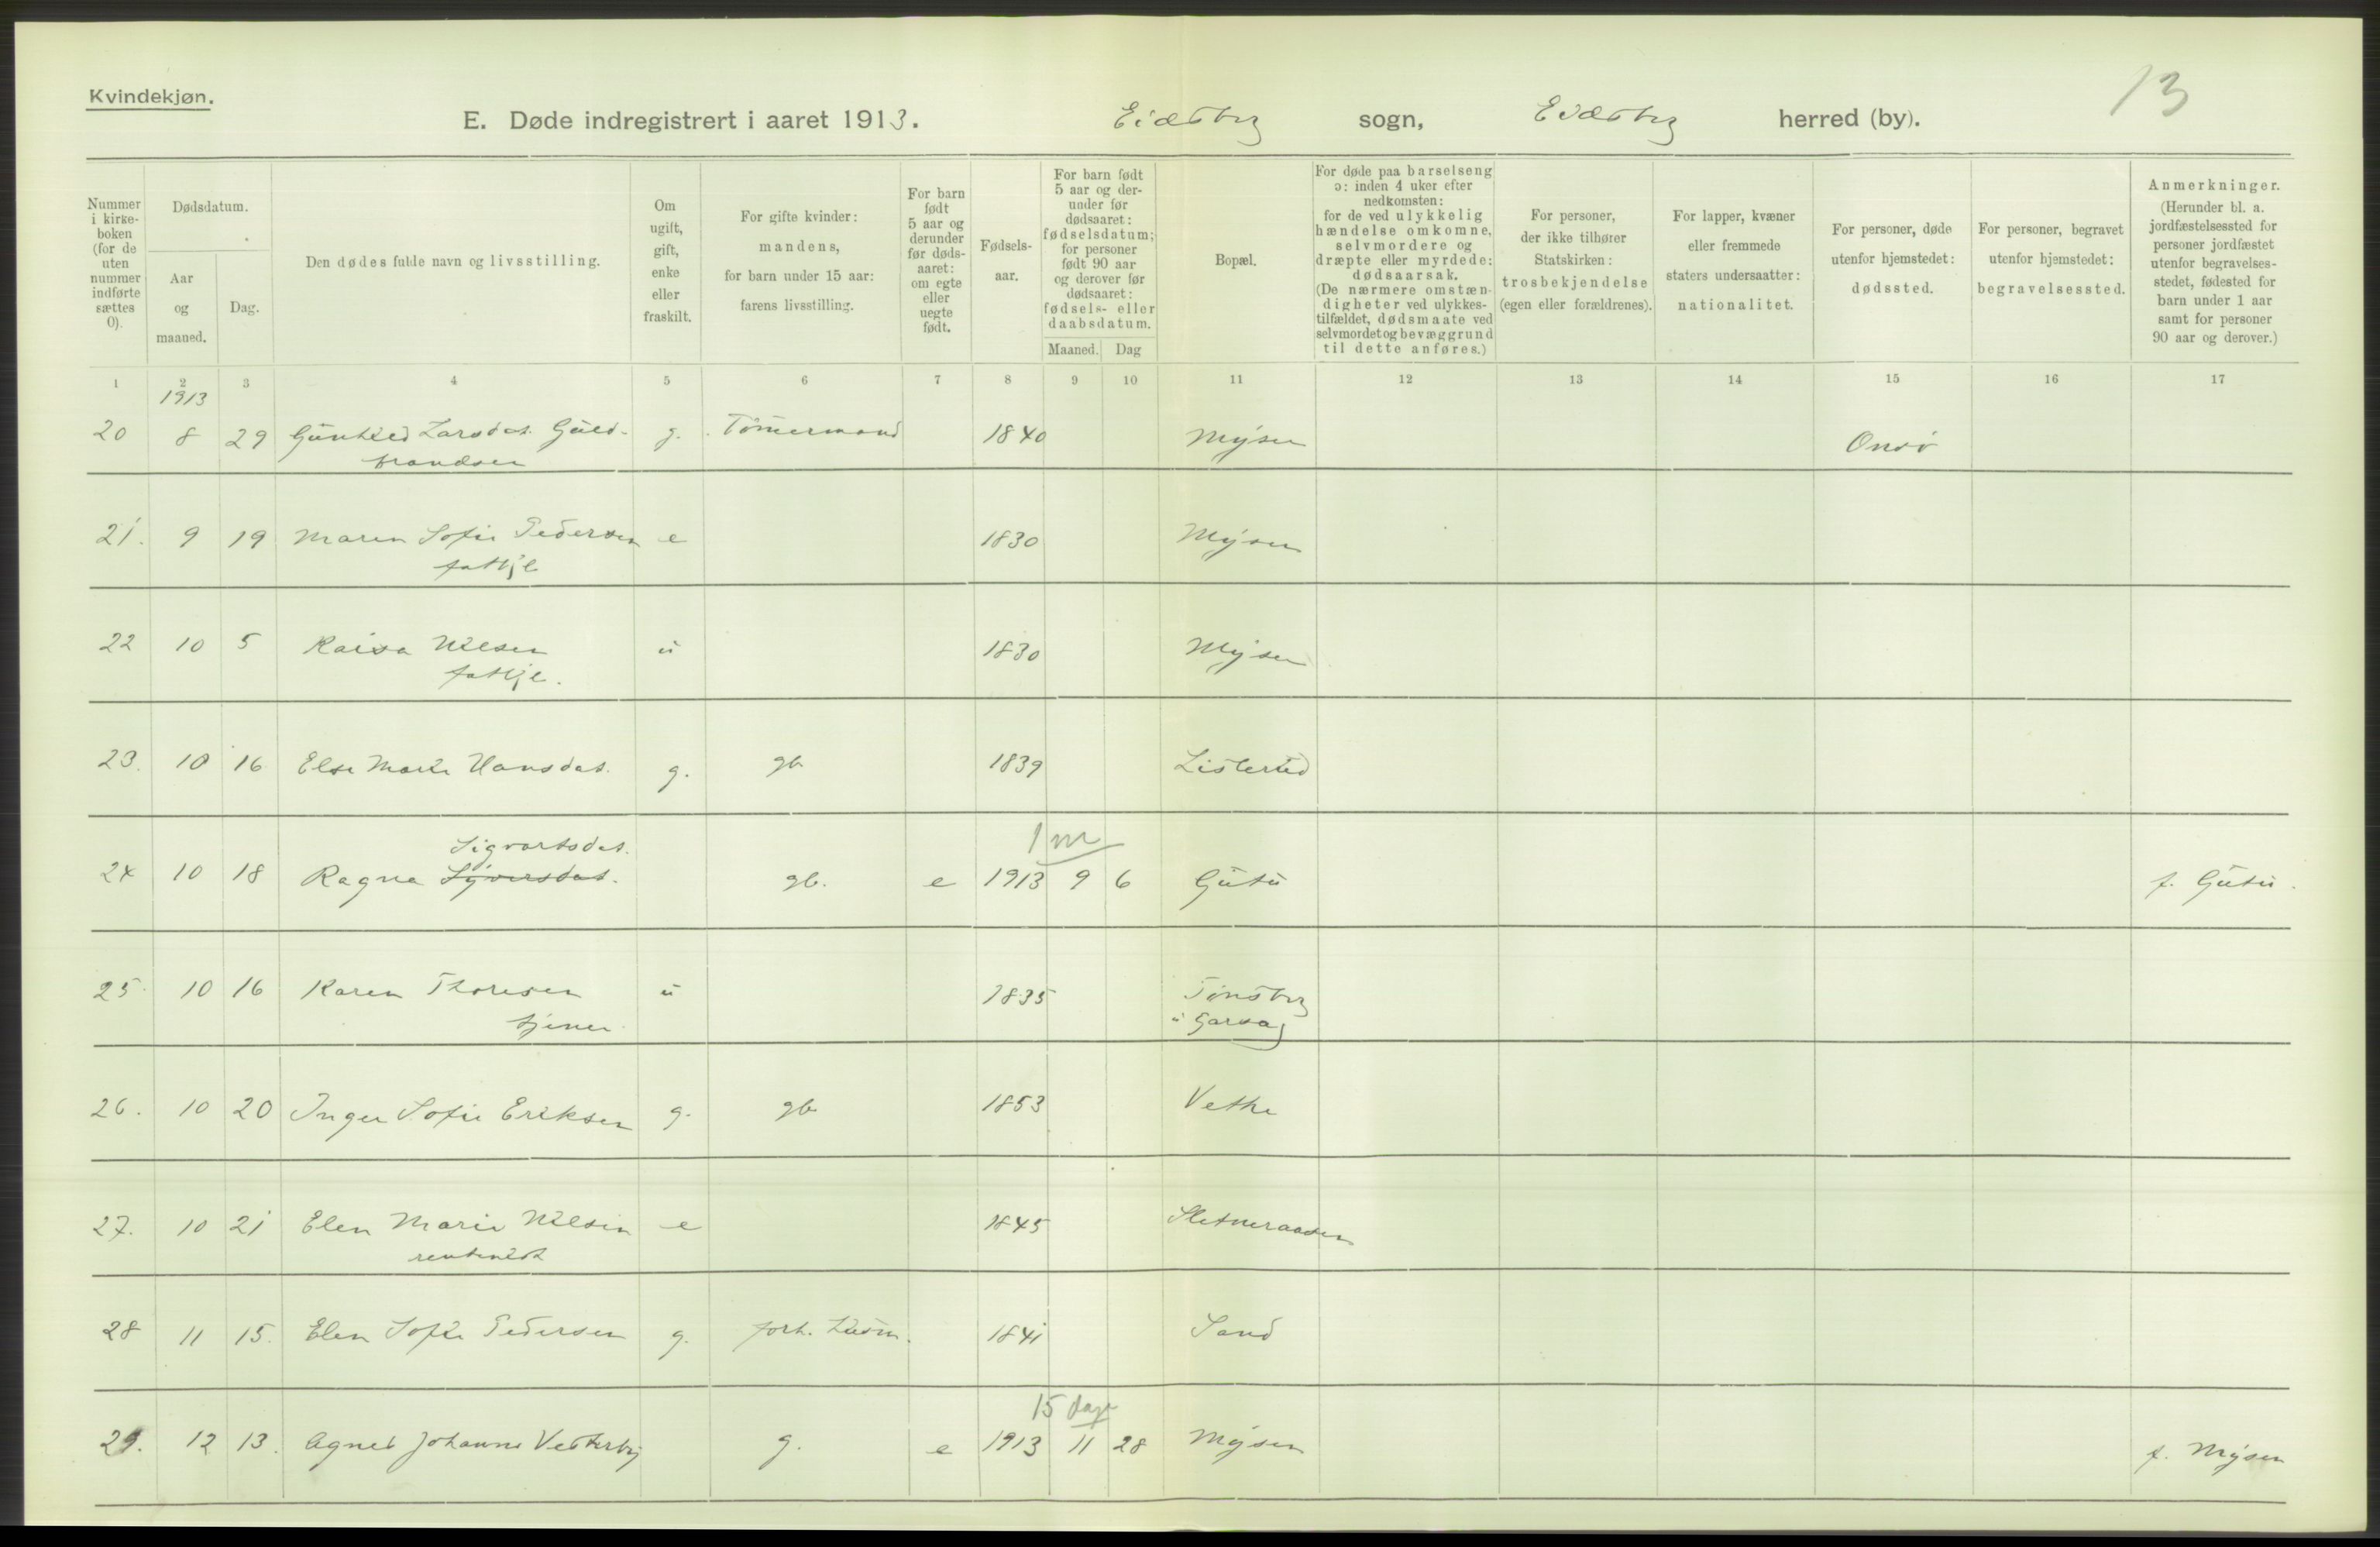 Kvindekjøn.
13
E. Døde indregistrert i aaret 1913. Eidsberg sogn, Eidsberg herred (by).
Nummer i kirkeboken (for de uten nummer indførte sættes 0).
Dødsdatum.
Aar og maaned.
Dag.
Den dødes fulde navn og livsstilling.
Om ugift, gift, enke eller fraskilt.
For gifte kvinder: mandens, for barn under 15 aar: farens livsstilling.
For barn født 5 aar og derunder før dødsaaret: om egte eller uegte født.
Fødselsaar.
For barn født 5 aar og derunder før dødsaaret: fødselsdatum; for personer født 90 aar og derover før dødsaaret: fødsels- eller daabsdatum.
Maaned. Dag
Bopæl.
For døde paa barselseng ɔ: inden 4 uker efter nedkomsten: for de ved ulykkelig hændelse omkomne, selvmordere og dræpte eller myrdede: dødsaarsak. (De nærmere omstændigheter ved ulykkestilfældet, dødsmaate ved selvmordet og bevæggrund til dette anføres.)
For personer, der ikke tilhører Statskirken: trosbekjendelse (egen eller forældrenes).
For lapper, kvæner eller fremmede staters undersaatter: nationalitet.
For personer, døde utenfor hjemstedet: dødssted.
For personer, begravet utenfor hjemstedet: begravelsessted.
Anmerkninger. (Herunder bl. a. jordfæstelsessted for personer jordfæstet utenfor begravelsesstedet, fødested for barn under 1 aar samt for personer 90 aar og derover.)
1 2 3 4 5 6 7 8 9 10 11 12 13 14 15 16 17
1913
20 8 29 Gunhild Larsdat. Guld- g. Tømermand 1840 Mysen Onsø
brandsen
21. 9 19 Maren Sofie Pedersen e 1830 Mysen
fattigl
22 10 5 Raisa Nilsen u 1830 Mysen
fattigl.
23. 10 16 Else Marie Hansdat. g. gb 1839 Listerud
Sigvartsdat. 1 m
24 10 18 Ragna Syversdat. gb. e 1913 9 6 Gutu f. Gutu.
25. 10 16 Karen Thoresen u 1835 Tønsberg
tjener
26. 10 20 Inger Sofie Eriksen g. gb 1853 Vethe
27. 10 21 Elen Marie Nilsen e 1845
28 11 15. Elen Sofie Pedersen g. forh. husm. 1841 Sand
15 dage
29. 12 13. Agnes Johanne Vesterby g. e 1913 11 28 Mysen f. Mysen